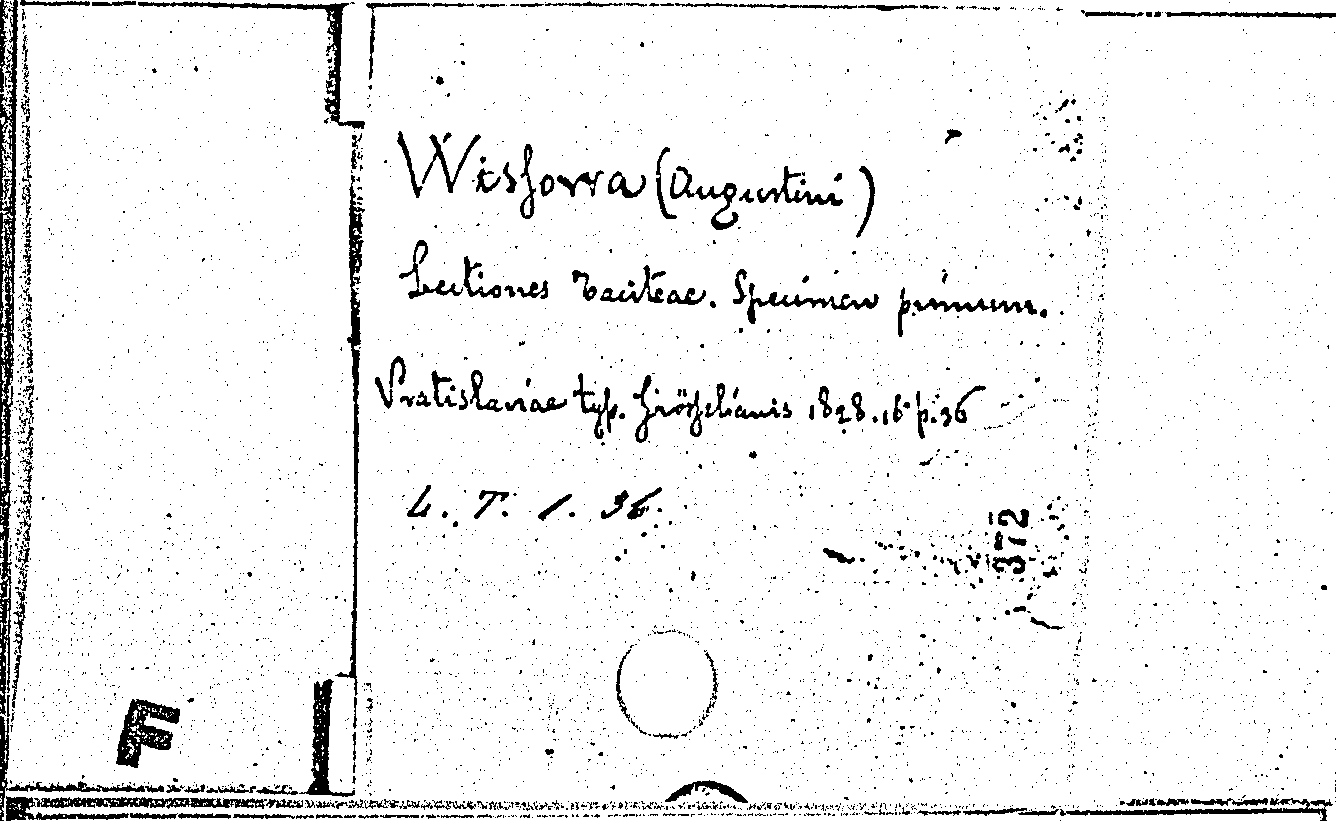 Wissowa (Augustini)
Lectiones Taciteae. Specimen primum.
Vratislaviae typ. 1828. 16° p. 36
L. T. 1. 36.
372
F